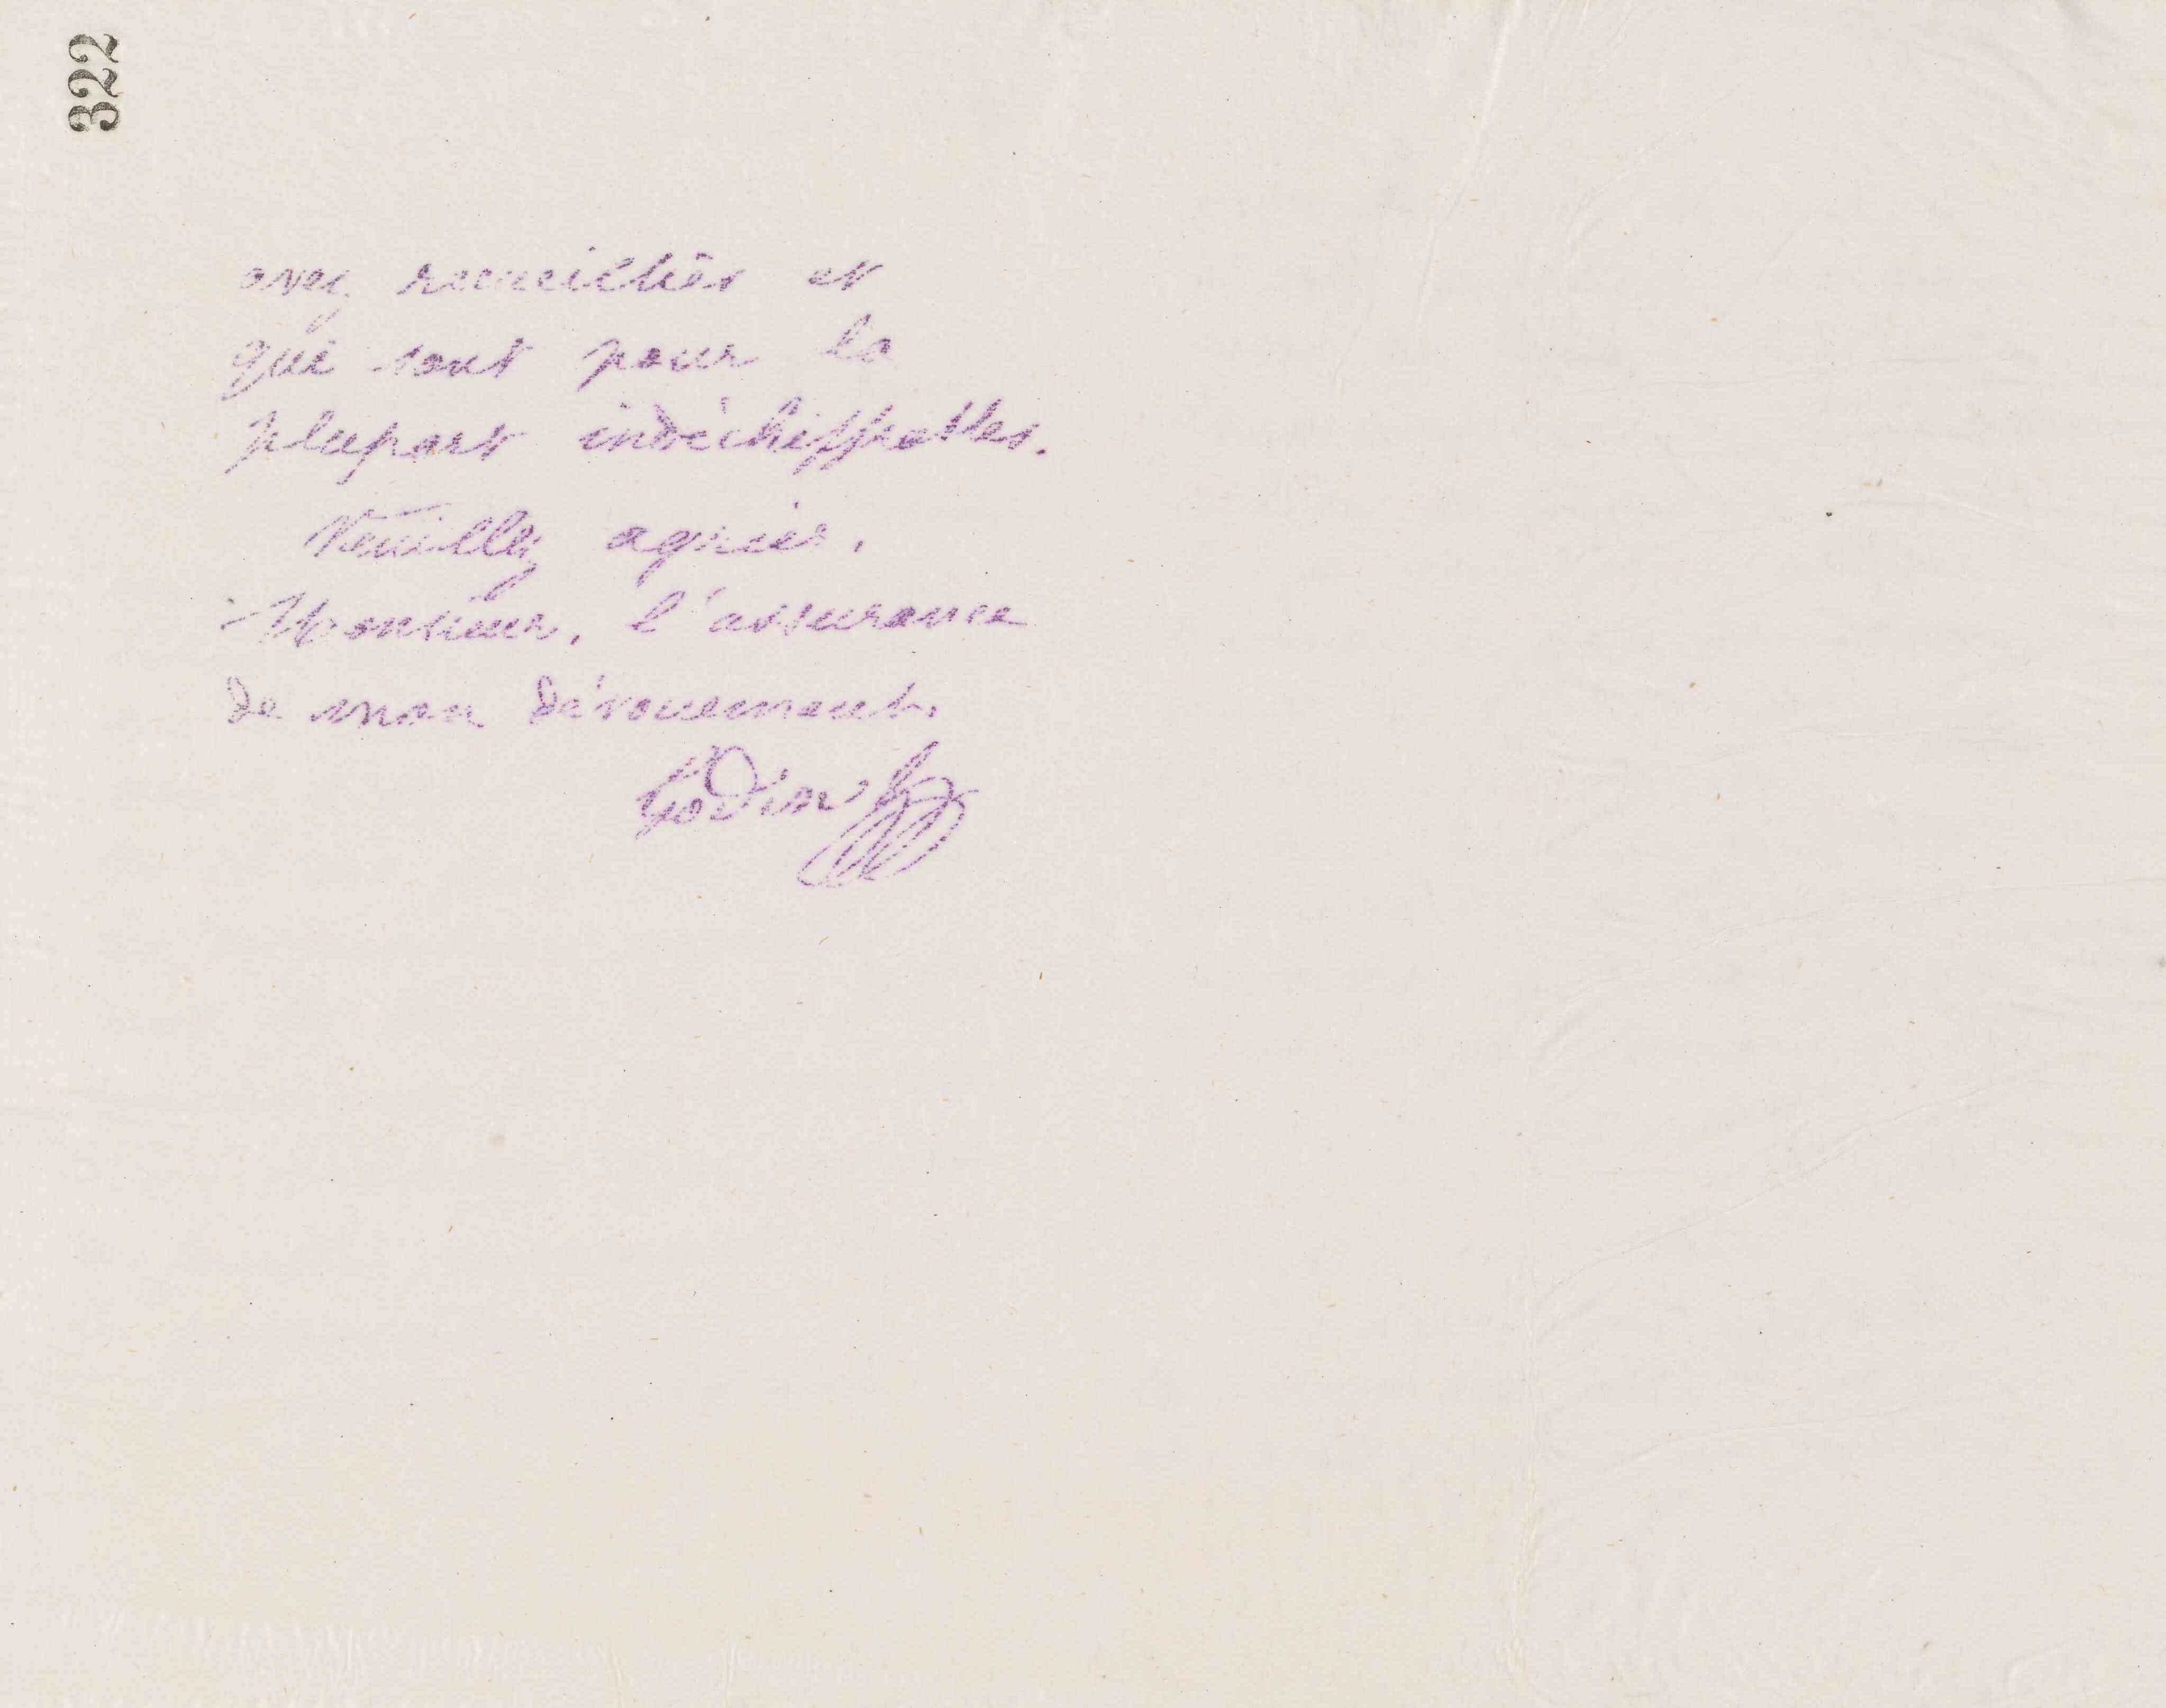 322
avez recueillies et
qui sont pour la
plupart indéchiffrables.
Veuillez agréer,
Monsieur, l'assurance
de mon dévouement.
Godin